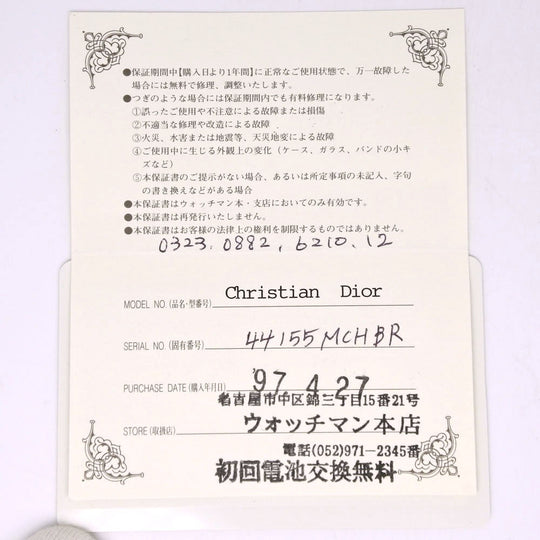 ●保証期間中【購入日より1年間】に正常なご使用状態で、万一故障した
場合には無料で修理、調整いたします。
●つぎのような場合には保証期間内でも有料修理になります。
①誤ったご使用や不注意による故障または損傷
②不適当な修理や改造による故障
③火災、水害または地震等、天災地変による故障
④ご使用中に生じる外観上の変化(ケース、ガラス、バンドの小キ
ズなど)
⑤本保証書のご提示がない場合、あるいは所定事項の未記入、字句
の書き換えなどがある場合
●本保証書はウォッチマン本・支店においてのみ有効です。
●本保証書は再発行いたしません。
●本保証書はお客様の法律上の権利を制限するものではありません。
0323.0882.6210.12
MODEL NO.(品名・型番号) Christian Dior
SERIAL NO.(固有番号) 44155MCHBR
PURCHASE DATE(購入年月日) '97.4.27
名古屋市中区錦三丁目15番21号
STORE(取扱店) ウォッチマン本店
電話(052)971-2345番
初回電池交換無料